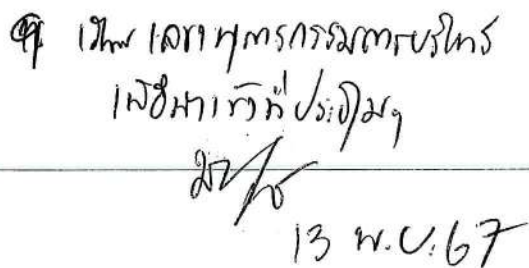 เรียน เลขานุการกรรมการบริหาร
เพื่อนำเข้าที่ประชุมฯ
13 พ.ย. 67